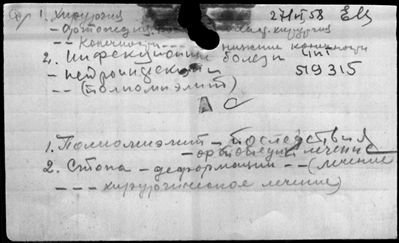 1. Хирургия 27/VI 58
- ортопедич. хирургия
-- Конечности -- нижние конечности
2. Инфекционные болезни
- нейроинфекции 519315
-- (полиомиэлит)
А С
1. Полиомиэлит - последствия
- ортопедич лечение
2. Стопа - деформации -- (лечение
--- хирургическое лечение)